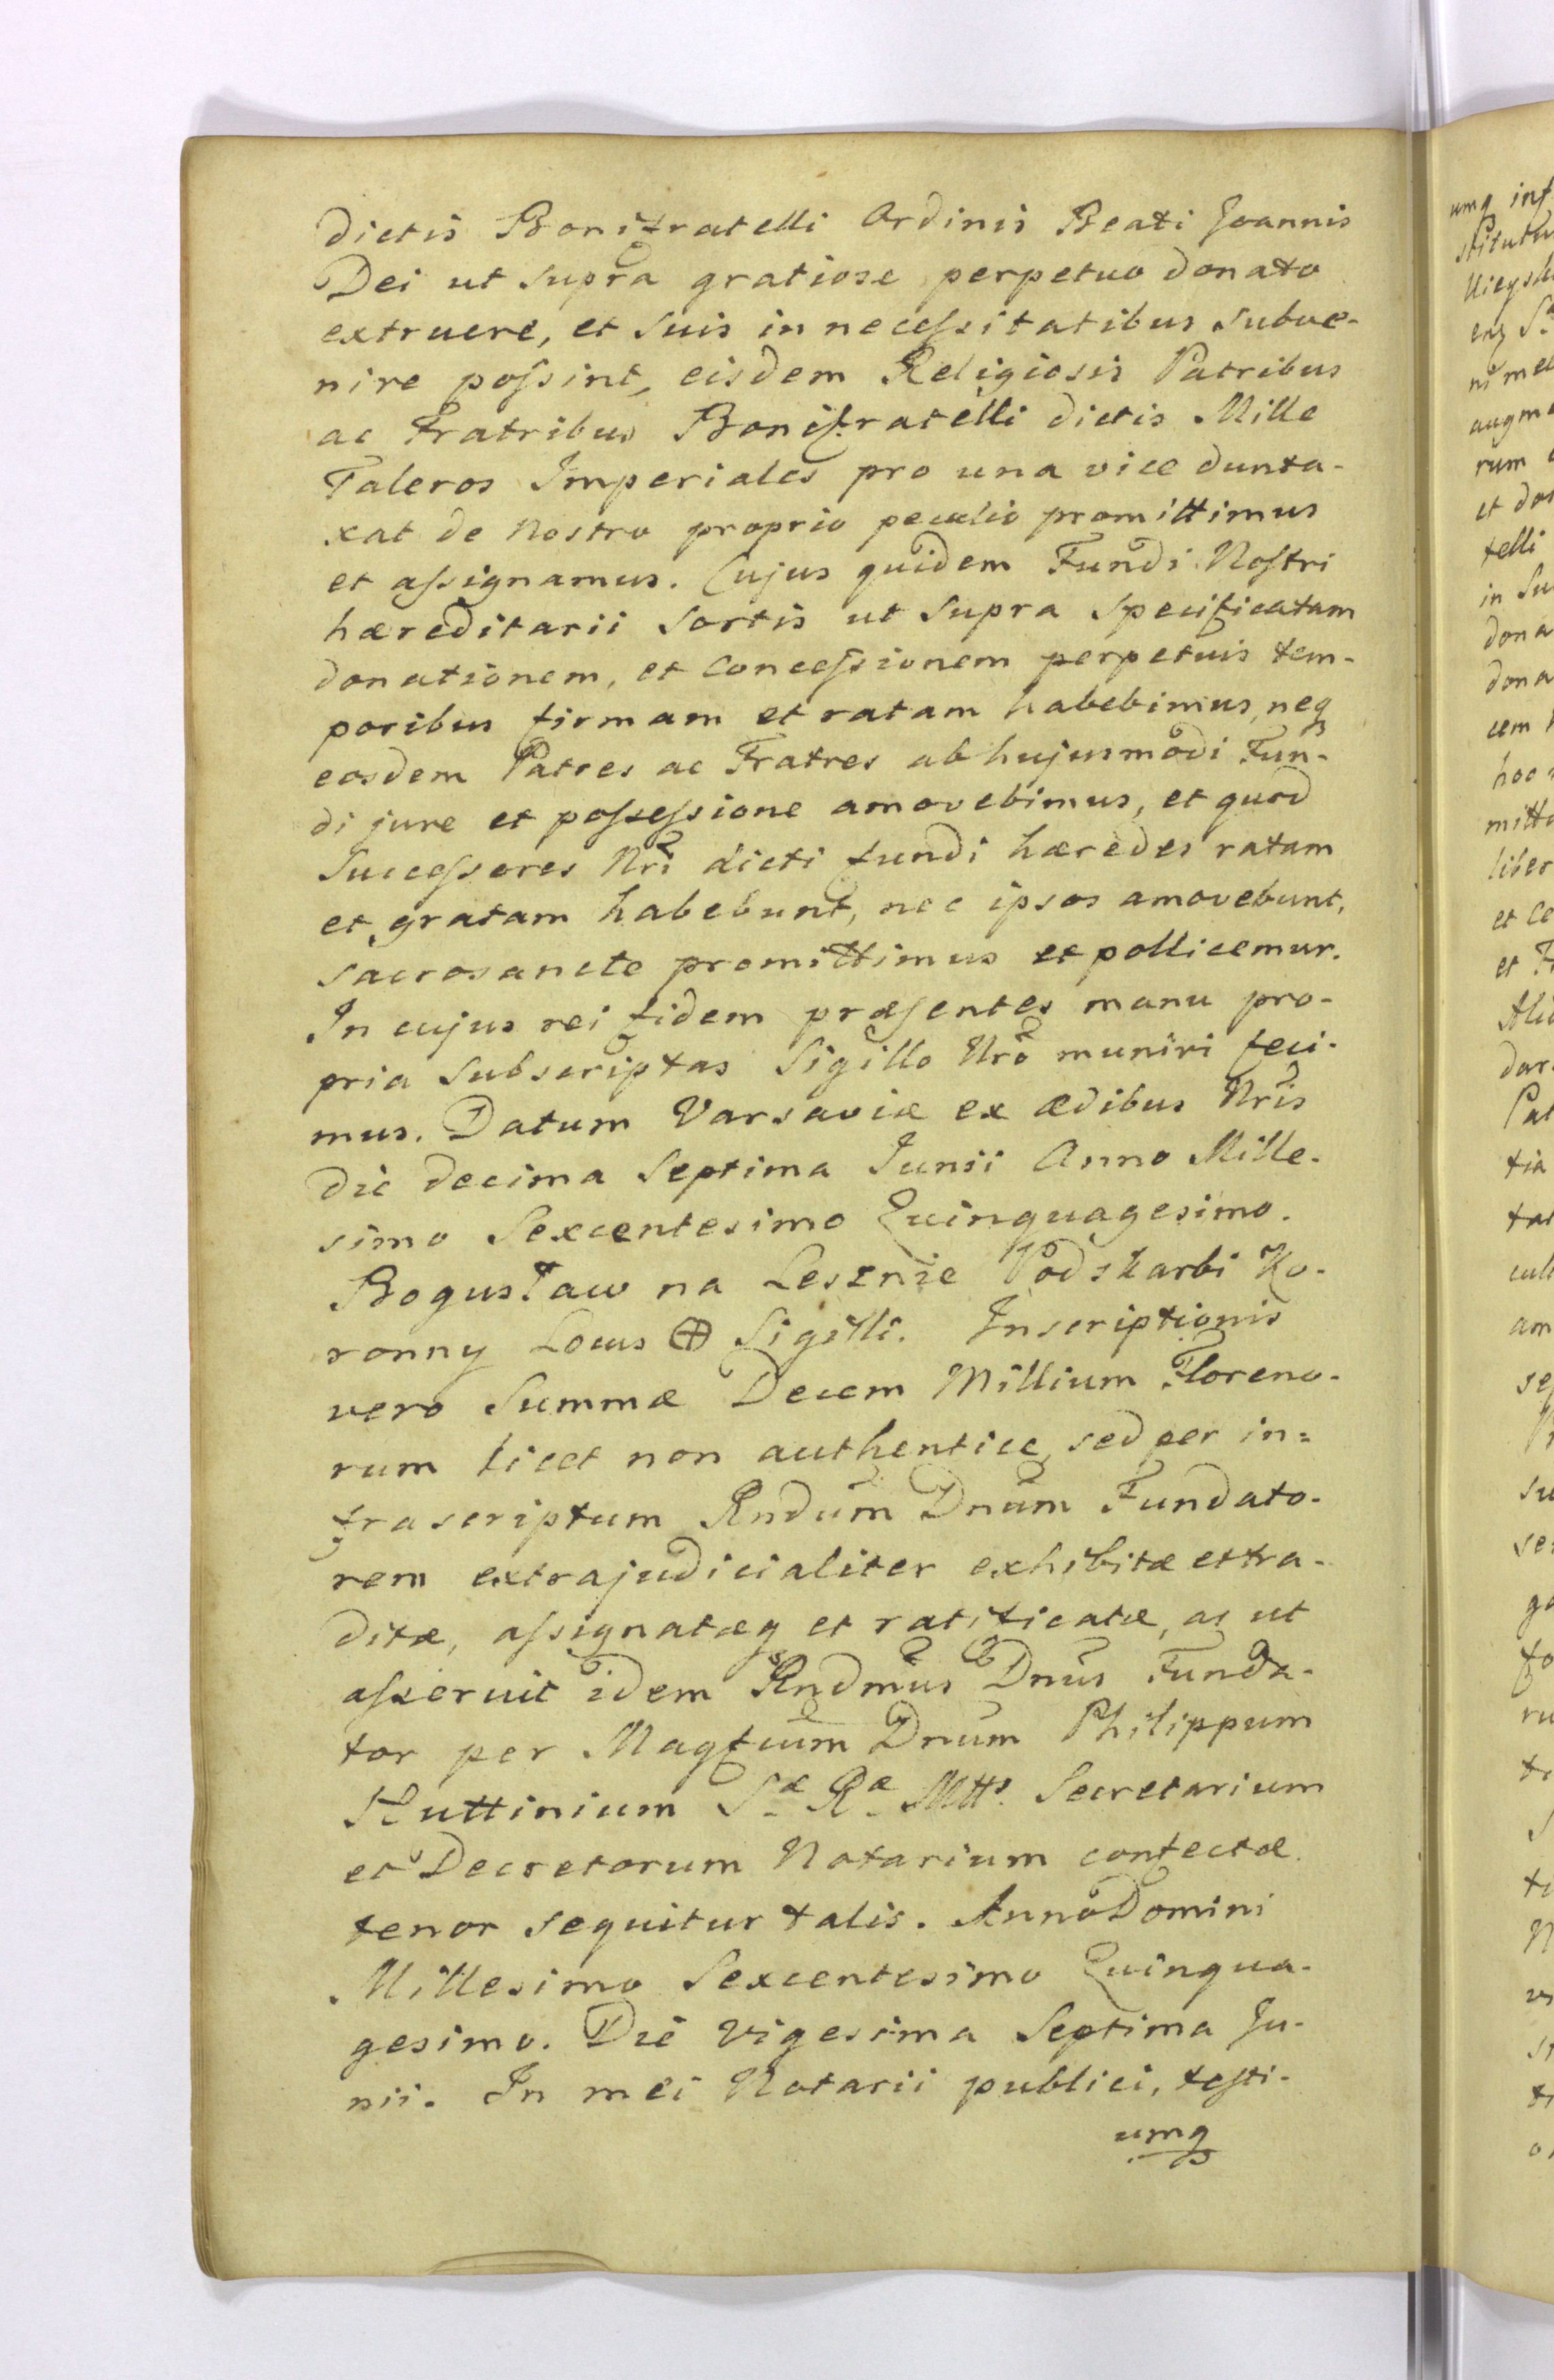 dictis Bonifratelli Ordinis Beati Joannis
Dei ut supra gratiose perpetuo donato
extruere, et suis in neceſsitatibus subve-
nire poſsint, eisdem Religiosis Patribus
ac Fratribus Bonifratelli dictis Mille
Taleros Imperiales pro una vice dunta-
xat de Nostro proprio peculio promittimus
et aſsignamus. Cujus quidem Fundi Noſtri
hæreditarii sortis ut supra specificatam
donationem, et Conceſsionem perpetuis tem-
poribus firmam et ratam habebimus, neq
eosdem Patres ac Fratres ab hujusmodi Fun-
di jure et poſseſsione amovebimus, et quod
Succeſsores Nri dicti fundi hæredes ratam
et gratam habebunt, nec ipsos amovebunt,
sacrosancte promittimus et pollicemur.
In cujus rei fidem præſentes manu pro-
pria subscriptas Sigillo Nro muniri feci-
mus. Datum Varsaviæ ex ædibus Nris
die decima Septima Junii Anno Mille-
simo Sexcentesimo Quinquagesimo.
Bogusław na Lesznie Podskarbi Ko-
ronny Locus ⊕ Sigilli. Inscriptionis
vero Summæ Decem Millium Floreno-
rum licet non authentice, sed per in=
frascriptum Rndum Dnum Fundato-
rem extrajudicialiter exhibitæ et tra-
ditæ, aſsignatæq et ratificatæ, ac ut
aſseruit idem Rndmus Dnus Funda-
tor per Magfcum Dnum Philippum
Huttinium Sæ Ræ Mtts. Secretarium
et Decretorum Notarium confectæ
tenor sequitur talis. Anno Domini
Millesimo Sexcentesimo Quinqua-
gesimo. Die vigesima Septima Ju-
nii. In mei Notarii publici, teſti-
umq